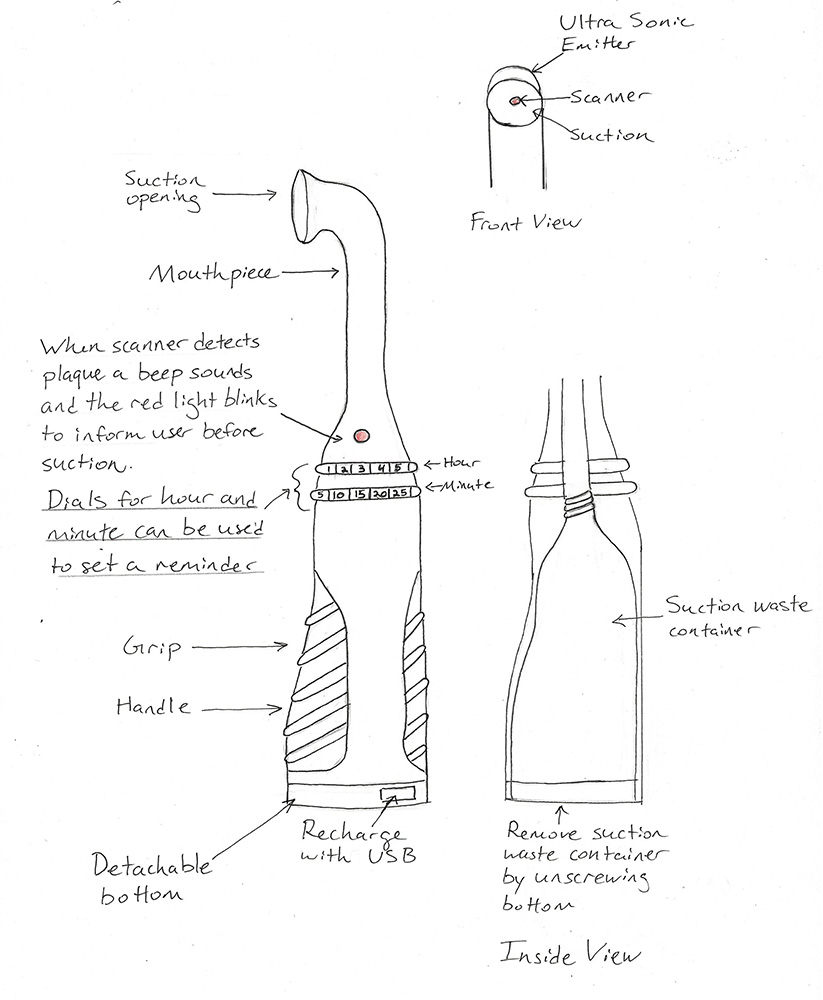 Ultra Sonic
Emitter
Scanner
Suction
Front View
Suction
opening
Mouthpiece
When scanner detects
plaque a beep sounds
and the red light blinks
to inform user before
suction.
Dials for hour and
minute can be used
to set a reminder
1 2 3 4 5
Hour
5 10 15 20 25
Minute
Grip
Handle
Detachable
bottom
Recharge
with USB
Suction waste
container
Remove suction
waste container
by unscrewing
bottom
Inside View